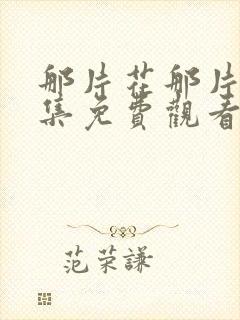 那片花那片
集免費觀看
范荣謙